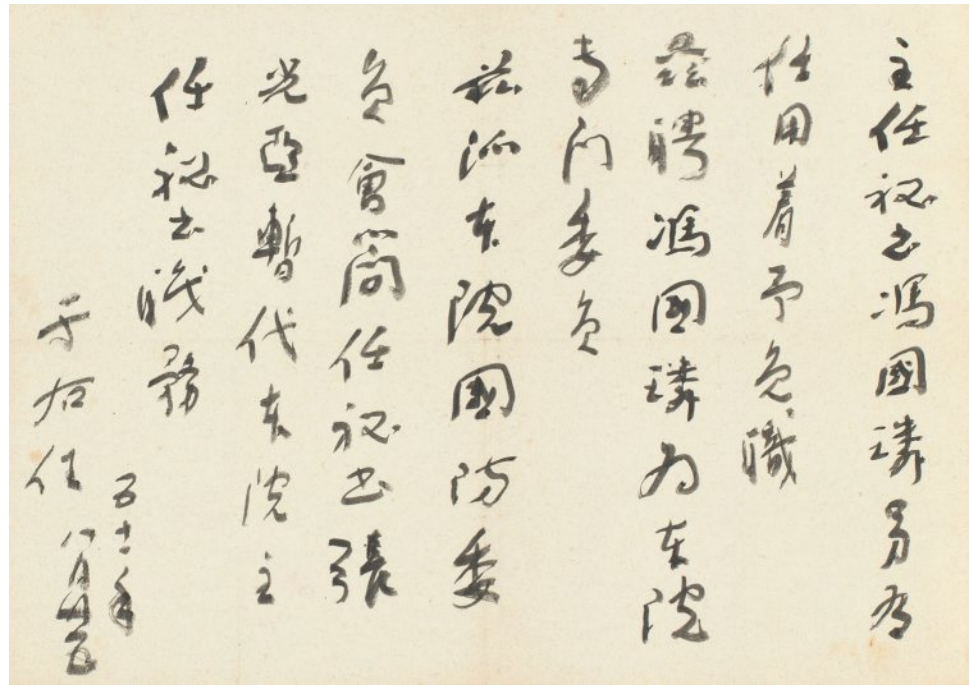 主任秘書馮國璘另有
任用着予免職
茲聘馮國璘為本院
專門委員
茲派本院國防委
員會簡任秘書張
光亞暫代本院主
任秘書職務
于右任
五十一年
八月廿五